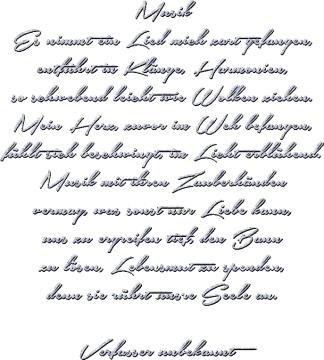 Musik
Es nimmt ein Lied mich zart gefangen,
entführt in Klänge, Harmonien,
so schwebend leicht wie Wolken ziehen.
Mein Herz, zuvor im Weh befangen,
fühlt sich beschwingt, im Licht erblühend.
Musik mit ihren Zauberhänden
vermag, was sonst nur Liebe kann,
uns zu ergreifen tief, den Bann
zu lösen, Lebensmut zu spenden,
denn sie rührt unsre Seele an.
Verfasser unbekannt